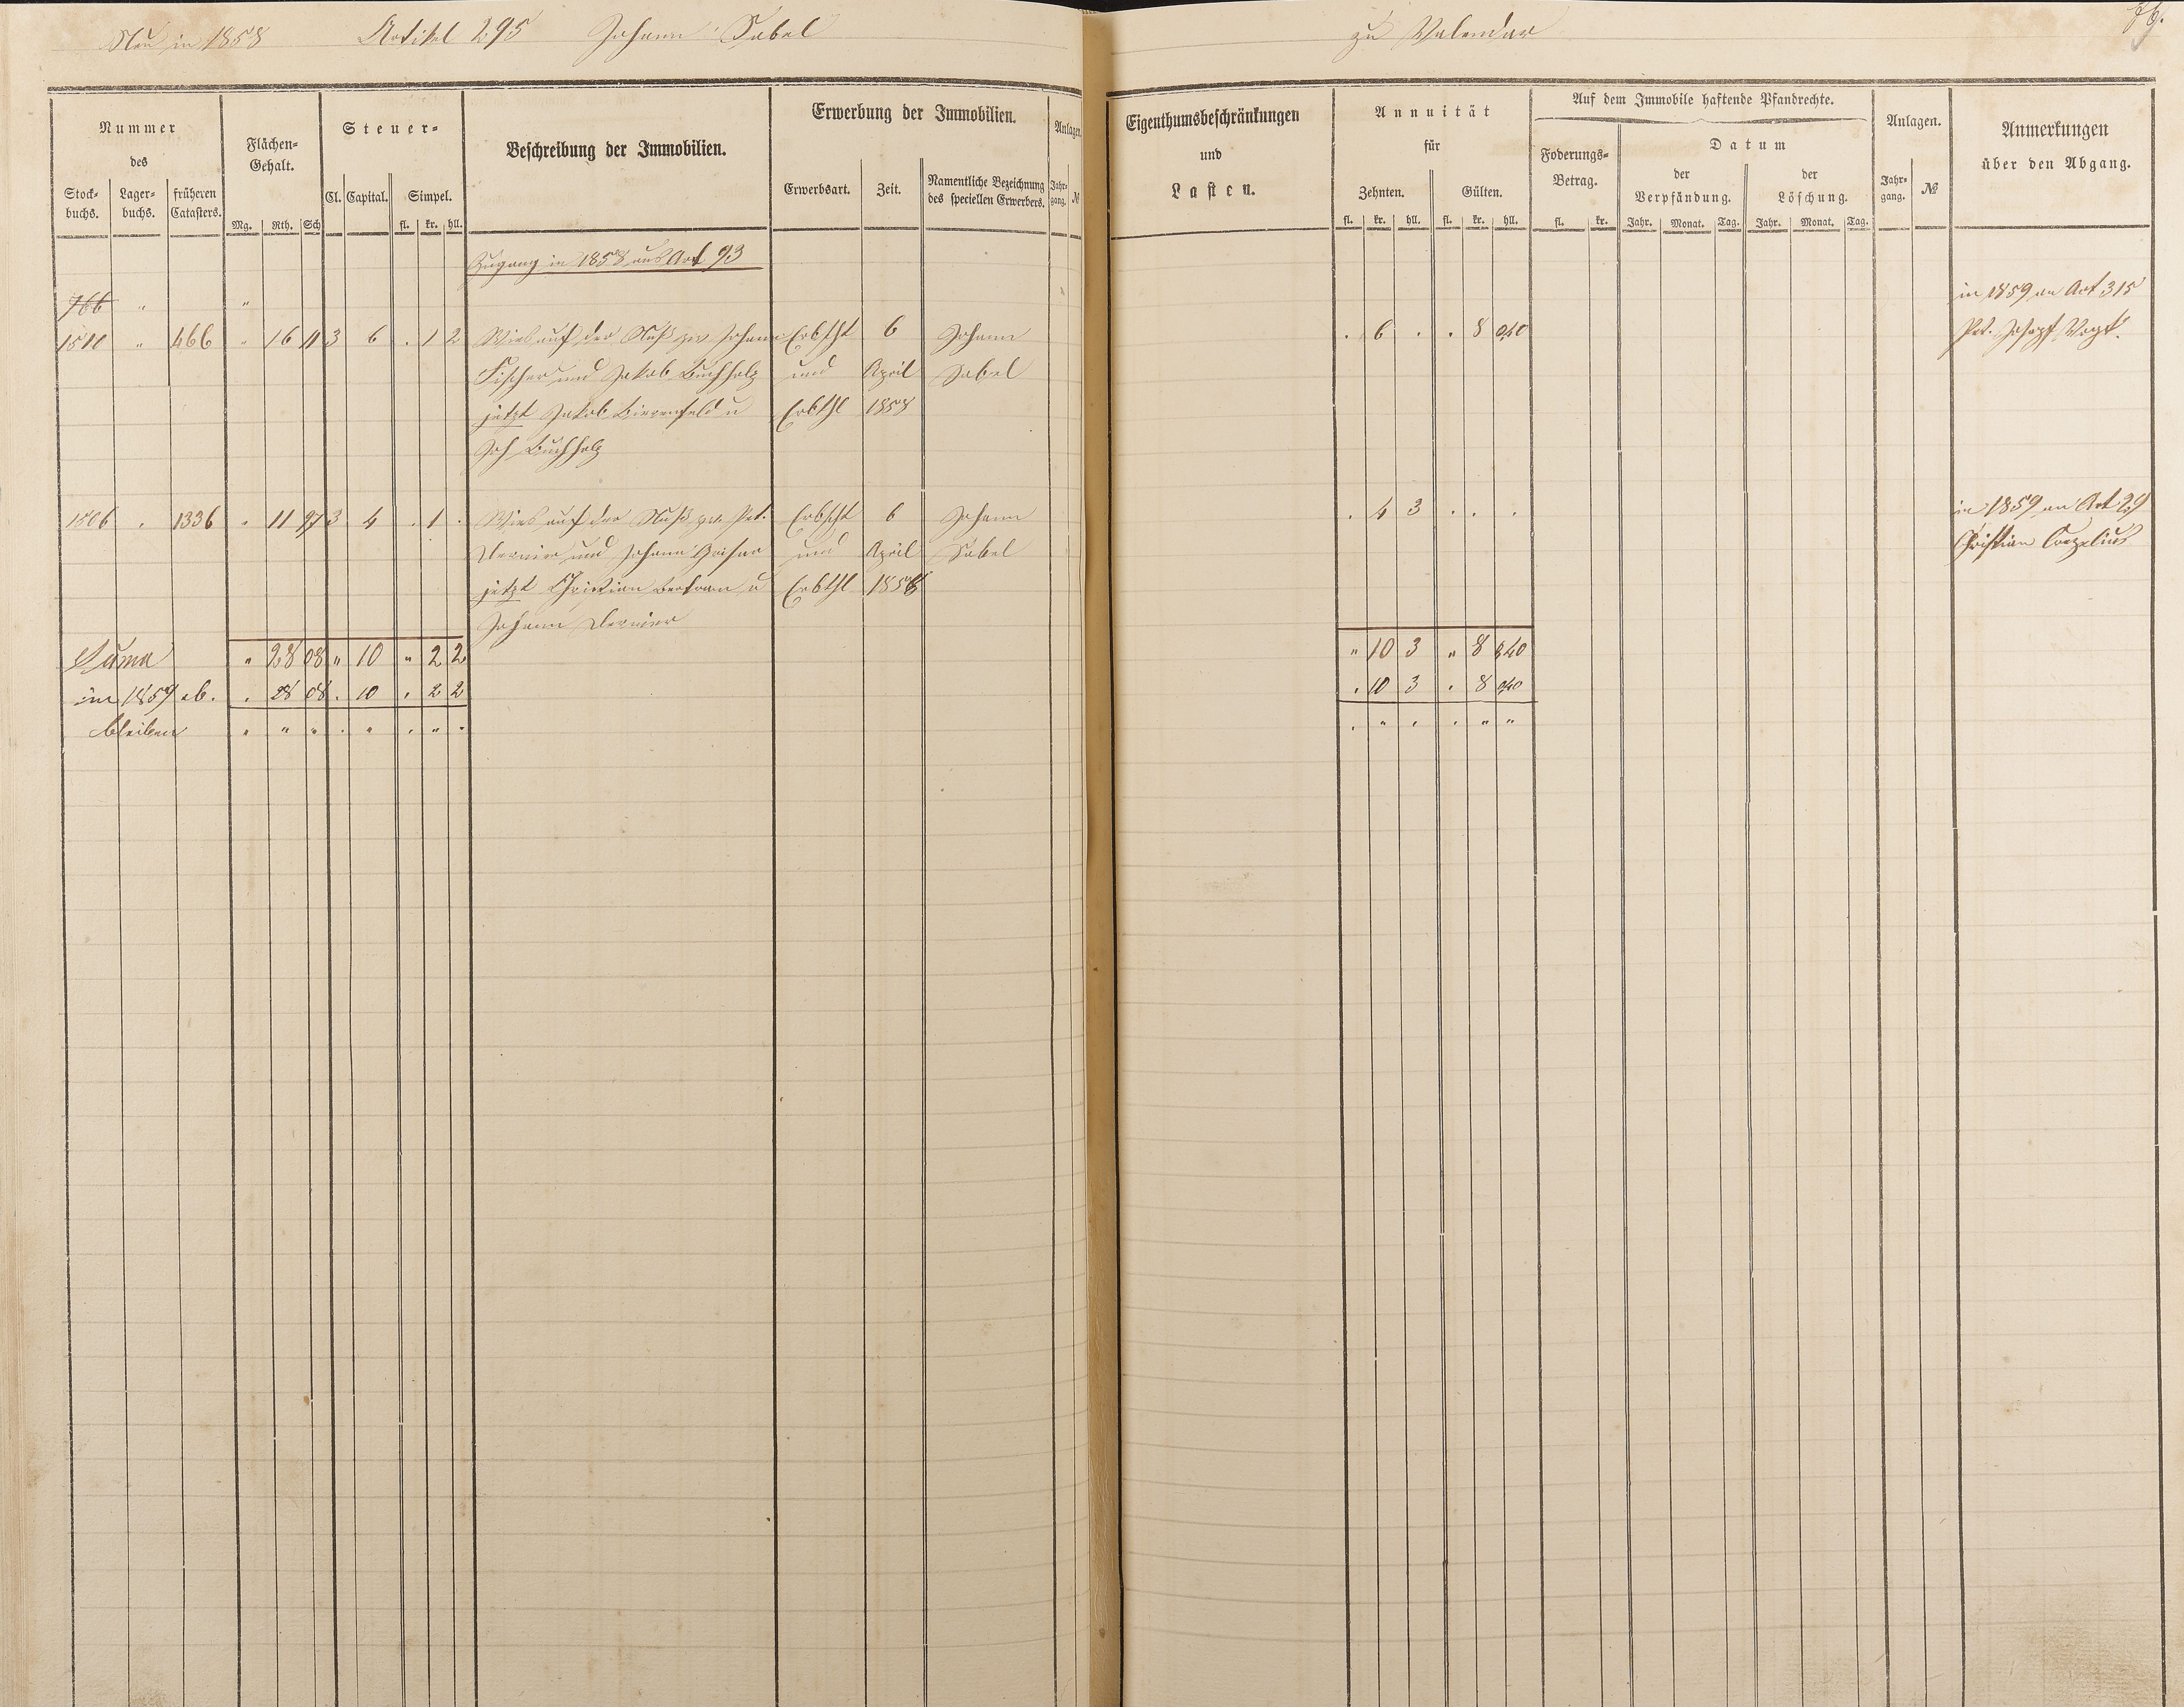 Neu in 1858 Artikel 295 Johann Sabel zu Valendar 76.
Nummer
des
Stock-buchs. Lager-buchs. früheren Catasters.
Flächen-Gehalt.
Mg. Rth. Sch
Steuer-
Cl. Capital. Simpel.
fl. kr. hll.
Beschreibung der Immobilien.
Erwerbung der Immobilien.
Erwerbsart. Zeit. Namentliche Bezeichnung des speciellen Erwerbers.
Anlagen.
Jahr-gang. №
Eigenthumsbeschränkungen
und
Lasten.
Annuität
für
Zehnten. Gülten.
fl. kr. hll. fl. kr. hll.
Auf dem Immobile haftende Pfandrechte.
Foderungs-Betrag.
fl. kr.
Datum
der Verpfändung. der Löschung.
Jahr. Monat. Tag. Jahr. Monat. Tag.
Anlagen.
Jahr-gang. №
Anmerkungen
über den Abgang.
Zugang in 1858 aus Art 93
766 " " in 1859 an Art 315
1511 " 466 " 16 11 3 6 . 1 2 Wies auf der Nuß zw Johann Erbscht 6 Johann . 6 . . 8 040 Pet. Joseph Vogt.
Fischer und Jakob Buchholz und April Sabel
jetzt Jakob Birrenfeld u Erbthl 1858
Joh Buchholz
1806 . 1336 " 11 97 3 4 . 1 . Wies auf der Nuß zw. Pet. Erbscht 6 Johann . 4 3 . . . in 1859 an Art 29
Dernier und Johann und April Sabel Christian Corzelius
jetzt Christian Bertram u Erbthl 1858
Johann Dernier
Suma " 28 08 " 10 " 2 2 " 10 3 " 8 840
in 1859 ab. . 28 08 . 10 . 2 2 . 10 3 . 8 040
bleiben " " " . " . " . . " . . " "